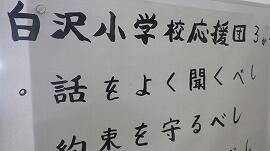 白沢小学校応援団3か
。話をよく聞くべし
約束を守るべし
べし